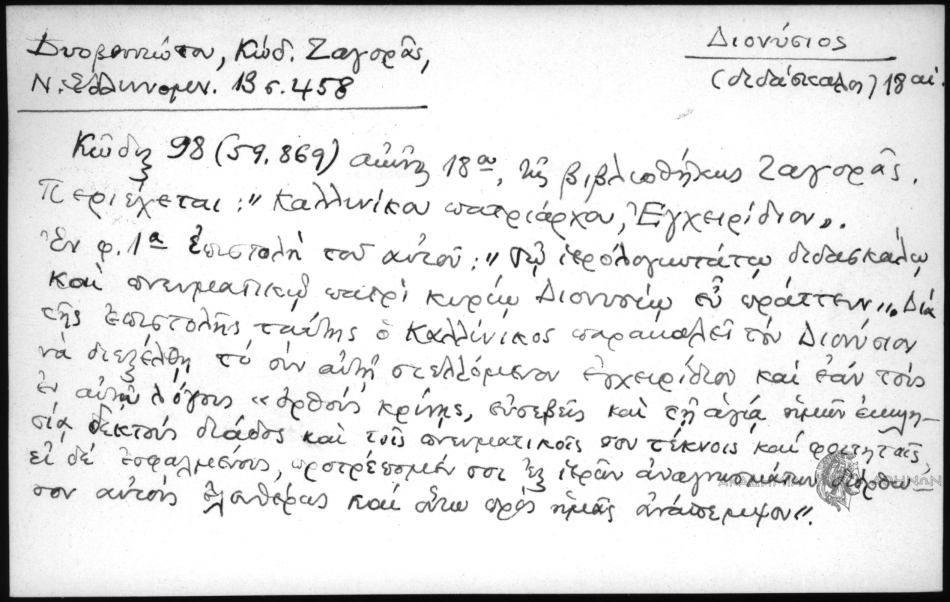 Δυοβουνιώτου, Κώδ. Ζαγορᾶς,
Ν. Ἑλληνομν. 13 σ. 458
Διονύσιος
(διδάσκαλος) 18 αἰ.
Κῶδιξ 98 (59.869) αἰῶνος 18ου, τῆς βιβλιοθήκης Ζαγορᾶς.
Περιέχεται: "Καλλινίκου πατριάρχου, Ἐγχειρίδιον".
Ἐν φ. 1α ἐπιστολὴ τοῦ αὐτοῦ: "Τῷ ἱερολογιωτάτῳ διδασκάλῳ
καὶ πνευματικῷ πατρὶ κυρίῳ Διονυσίῳ εὖ πράττειν". Διὰ
τῆς ἐπιστολῆς ταύτης ὁ Καλλίνικος παρακαλεῖ τὸν Διονύσιον
νὰ διεξέλθῃ τὸ σὺν αὐτῇ στελλόμενον ἐγχειρίδιον καὶ ἐὰν τοὺς
ἐν αὐτῷ λόγους "ὀρθοὺς κρίνῃς, εὐσεβεῖς καὶ τῇ ἁγίᾳ ἡμῶν ἐκκλη-
σίᾳ δεκτοὺς διάδος καὶ τοῖς πνευματικοῖς σου τέκνοις καὶ φοιτηταῖς,
εἰ δὲ ἐσφαλμένους, προτρέπομέν σοι ἐξ ἱερῶν ἀναγνωσμάτων διόρθω-
σον αὐτοὺς ἐλευθέρως καὶ οὕτω πρὸς ἡμᾶς ἀνάπεμψον".